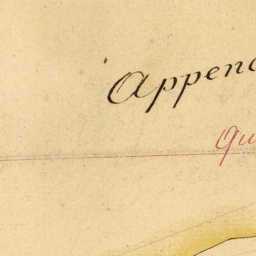 Append
Qu